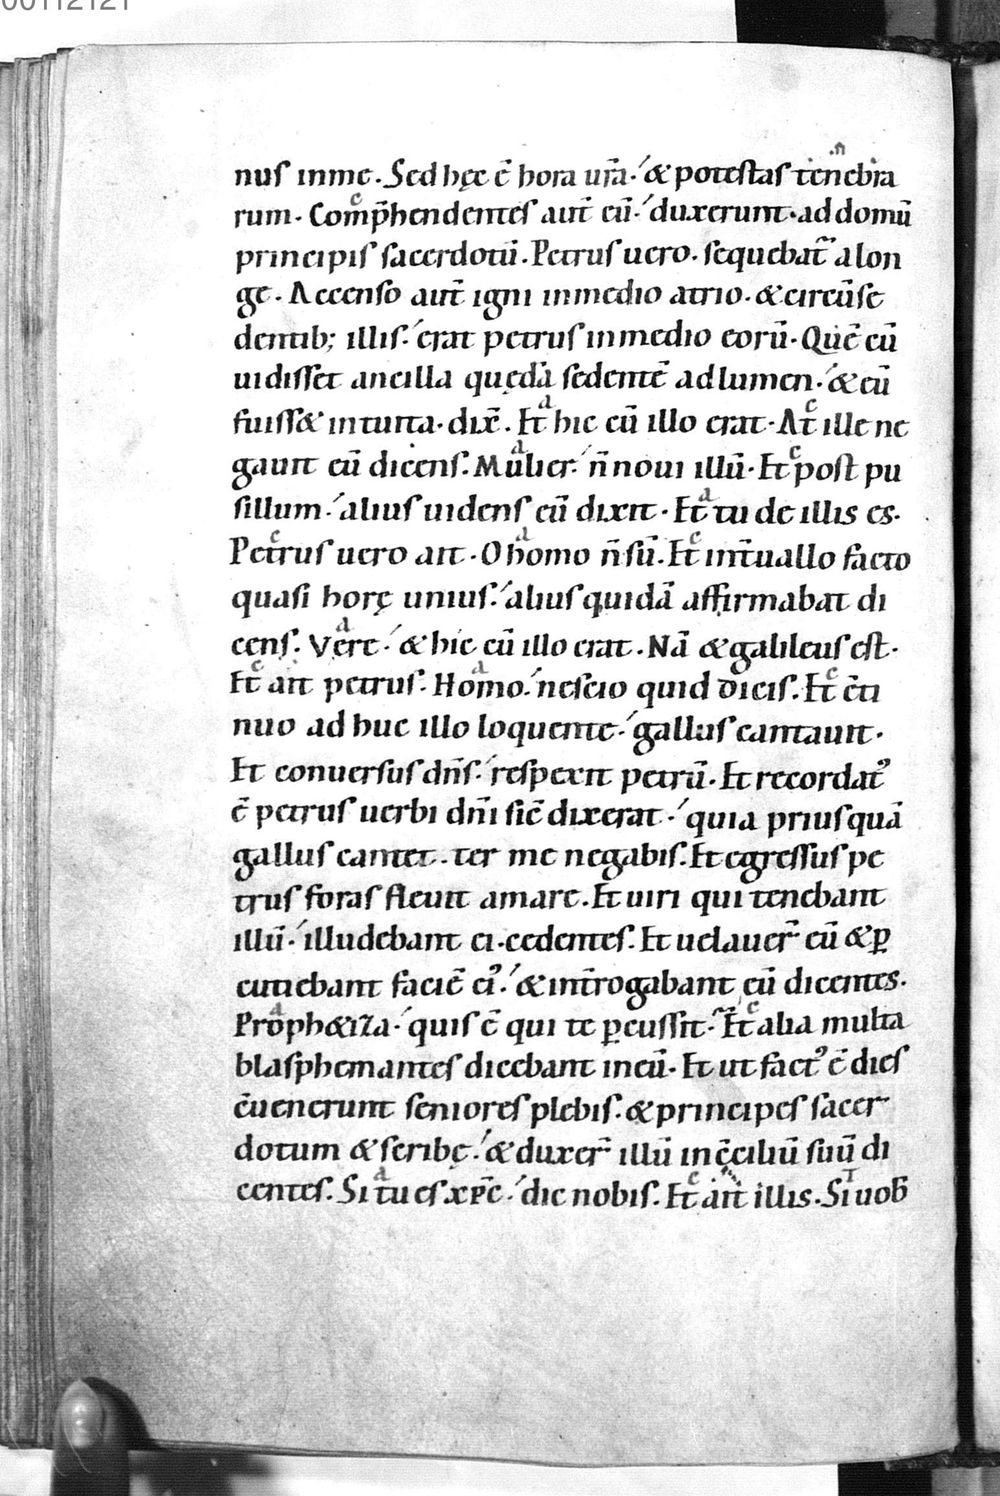 00112121
nus inme. Sed hęc ē hora ur̄a. & potestas tenebra
rum. Comp̄hendentes aut̄ eū. duxerunt. ad domū
principis sacerdotū. Petrus uero. sequebat̄ alon
ge. Accenso aut̄ igni inmedio atrio. & circūse
dentib; illis. erat petrus inmedio eorū. Quē cū
uidisset ancilla quędā sedentē ad lumen. & eū
fuiss& intuita. dix̄. Et hic cū illo erat. At̄ ille ne
gauit eū dicens. Mulier. n̄ noui illū. Et post pu
sillum. alius uidens eū dixit. Et tu de illis es.
Petrus uero ait. O homo n̄ sū. Et int̄uallo facto
quasi horę unius. alius quidā affirmabat di
cens. Vere. & hic cū illo erat. Nā & galileus est.
Et ait petrus. Homo. nescio quid dicis. Et c̄ti
nuo ad huc illo loquente. gallus cantauit.
Et conuersus dn̄s. respexit petrū. Et recordatꝰ
ē petrus uerbi dn̄i sic̄ dixerat. quia priusquā
gallus cantet. ter me negabis. Et egressus pe
trus foras fleuit amare. Et uiri qui tenebant
illū. illudebant ei. cedentes. Et uelauer̄ eū & ꝑ
cutiebant faciē eiꝰ. & int̄rogabant eū dicentes.
Proph&iza. quis ē qui te ꝑcussit. Et alia multa
blasphemantes dicebant ineū. Et ut factꝰ ē dies
c̄uenerunt seniores plebis. & principes sacer
dotum & scribę. & duxer̄ illū inc̄ciliū suū di
centes. Si tu es xp̄c. dic nobis. Et ait illis. Si uob̄